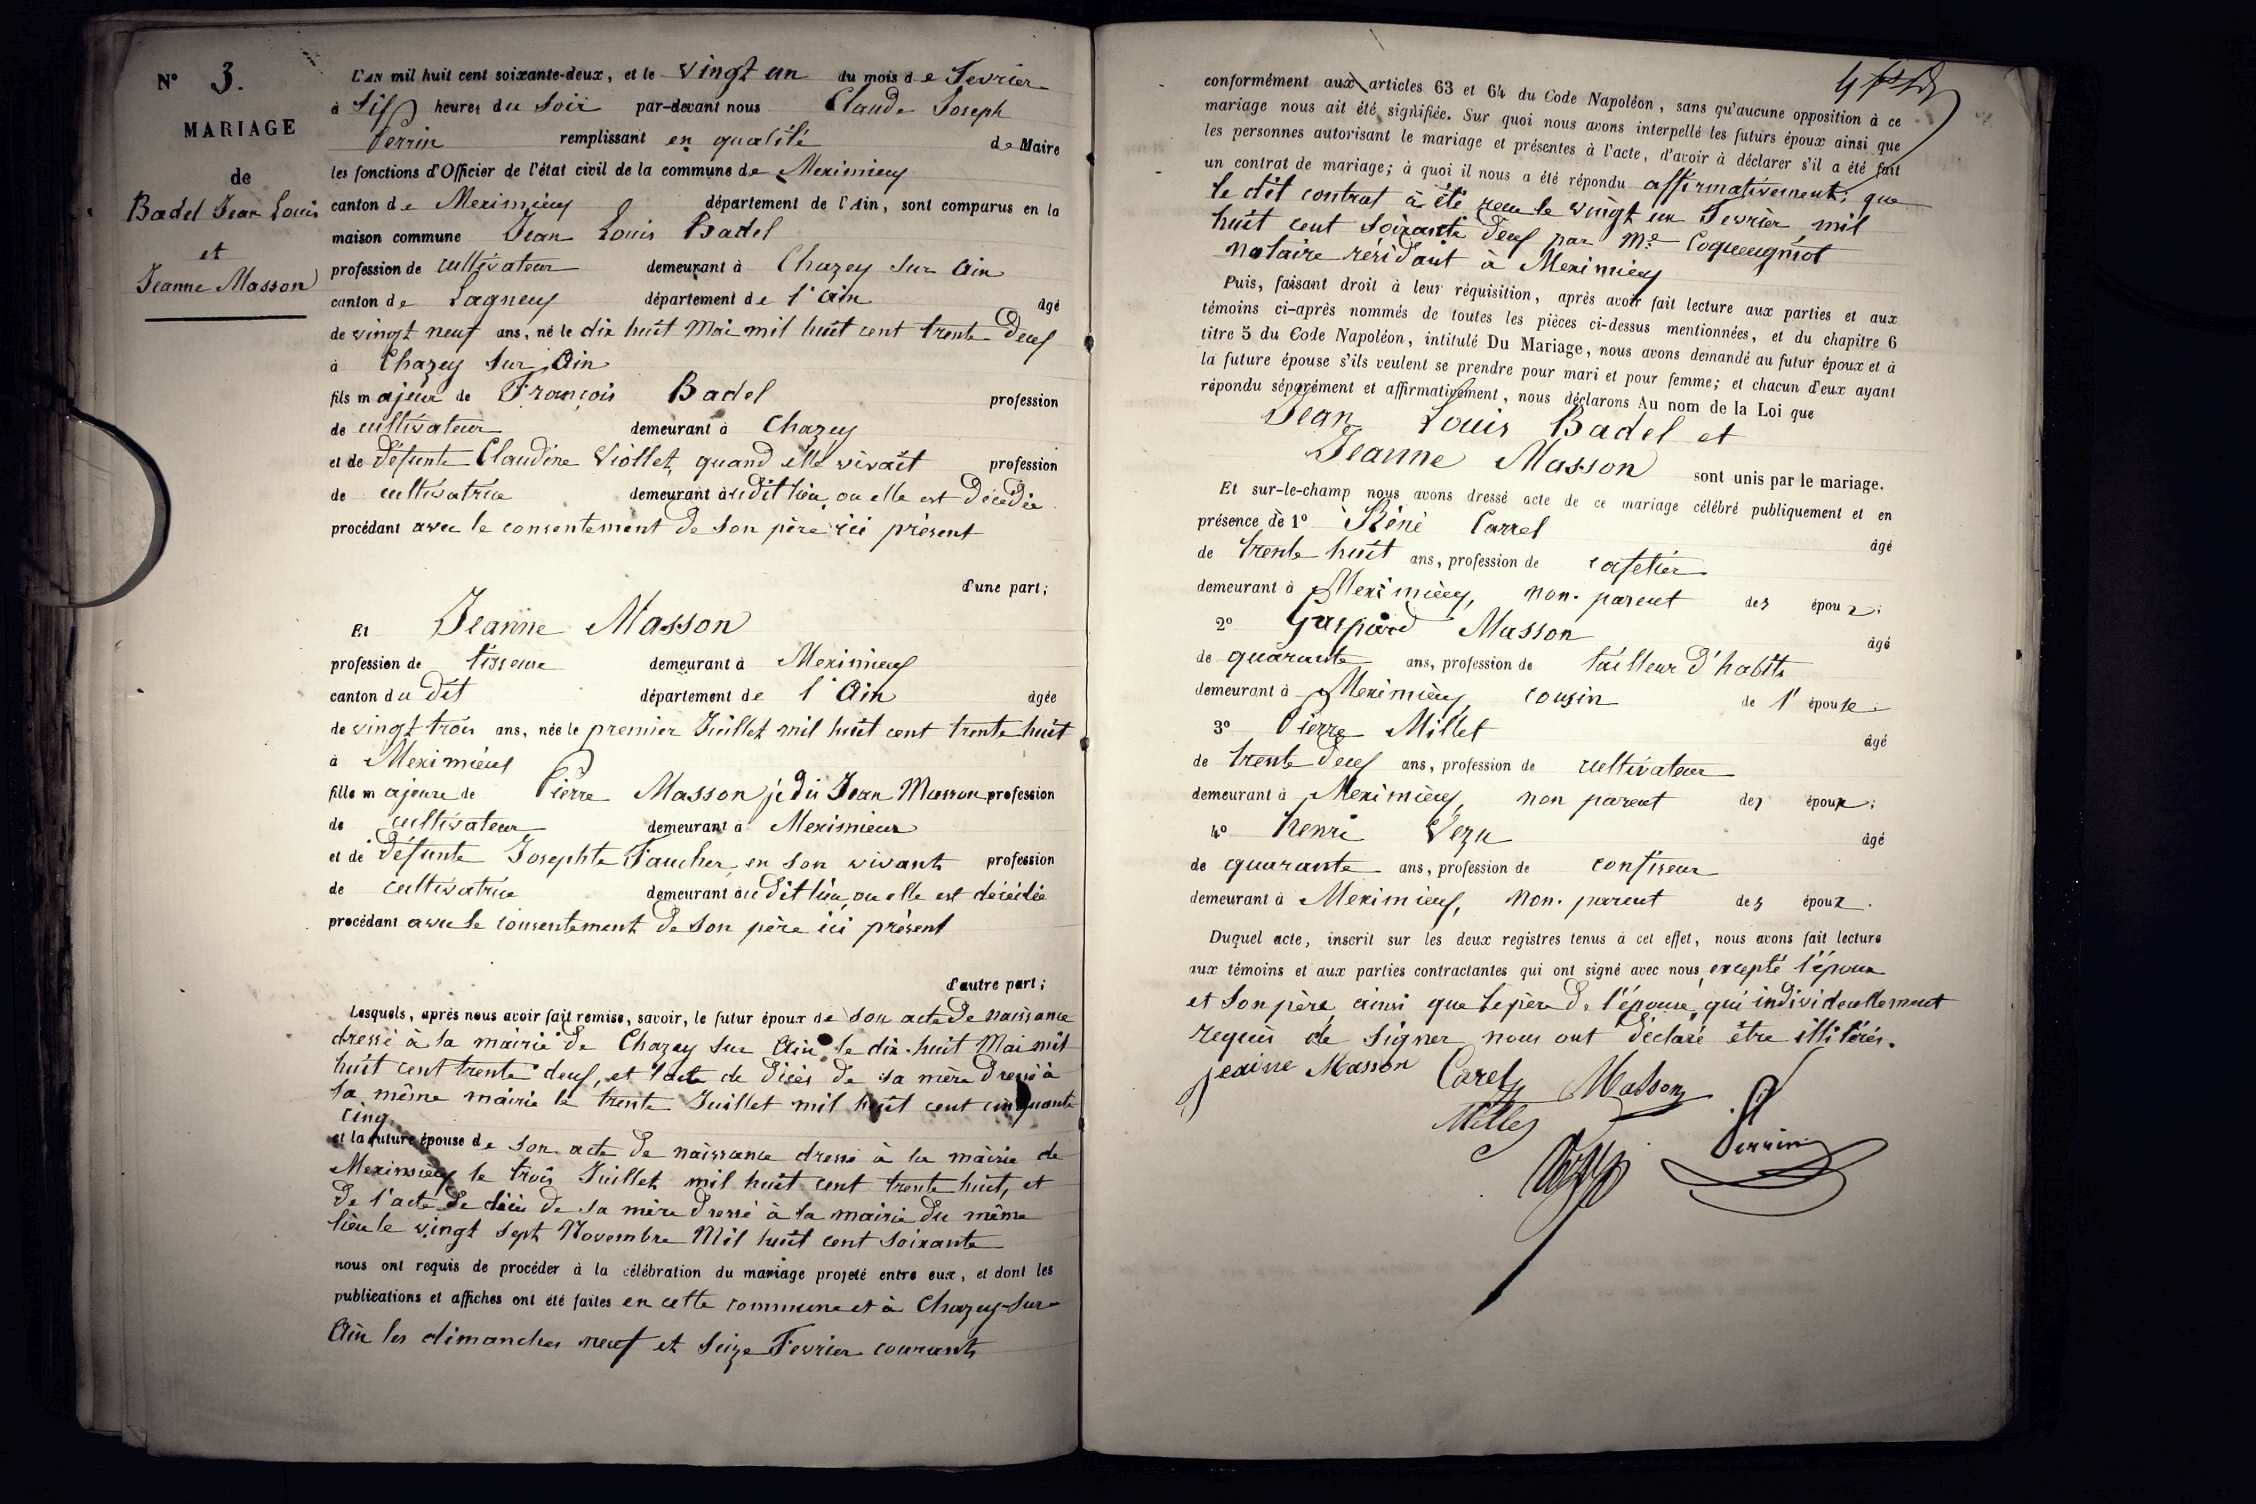 N° 3.
MARIAGE
de
Badel Jean Louis
et
Jeanne Masson
L'AN mil huit cent soixante-deux, et le vingt un du mois de Fevrier
à six heures du soir par-devant nous Claude Joseph
Perrin remplissant en qualité de Maire
les fonctions d'Officier de l'état civil de la commune de Meximieux
canton de Meximieux département de l'Ain, sont comparus en la
maison commune Jean Louis Badel
profession de cultivateur demeurant à Chazey sur Ain
canton de Lagneux département de l'Ain âgé
de vingt neuf ans, né le dix huit Mai mil huit cent trente deux
à Chazey sur Ain
fils majeur de François Badel profession
de cultivateur demeurant à Chazey
et de défunte Claudine Viollet, quand elle vivait profession
de cultivatrice demeurant audit lieu, ou elle est décédée
procédant avec le consentement de son père ici présent
d'une part;
Et Jeanne Masson
profession de tisseuse demeurant à Meximieux
canton du dit département de l'Ain âgée
de vingt trois ans, née le premier Juillet mil huit cent trente huit
à Meximieux
fille majeure de Pierre Masson je dis Jean Masson profession
de cultivateur demeurant à Meximieux
et de défunte Josephte Faucher, en son vivant profession
de cultivatrice demeurant audit lieu, ou elle est décédée
procédant avec le consentement de son père ici présent
d'autre part;
Lesquels, après nous avoir fait remise, savoir, le futur époux de son acte de naissance
dressé à la mairie de Chazey sur Ain le dix-huit Mai mil
huit cent trente deux, et l'acte de décès de sa mère dressé à
la même mairie le trente Juillet mil huit cent cinquante
cinq
et la future épouse de son acte de naissance dressé à la mairie de
Meximieux le trois Juillet mil huit cent trente huit, et
de l'acte de décès de sa mère dressé à la mairie du même
lieu le vingt sept Novembre Mil huit cent soixante
nous ont requis de procéder à la célébration du mariage projeté entre eux, et dont les
publications et affiches ont été faites en cette commune et à Chazey-sur
Ain les dimanches neuf et seize Fevrier courants
conformément aux articles 63 et 64 du Code Napoléon, sans qu'aucune opposition à ce
mariage nous ait été signifiée. Sur quoi nous avons interpellé les futurs époux ainsi que
les personnes autorisant le mariage et présentes à l'acte, d'avoir à déclarer s'il a été fait
un contrat de mariage; à quoi il nous a été répondu affirmativement; que
le dit contrat à été recu le vingt un Fevrier mil
huit cent soixante deux par Me Coqueugniot
notaire résidant à Meximieux
Puis, faisant droit à leur réquisition, après avoir fait lecture aux parties et aux
témoins ci-après nommés de toutes les pièces ci-dessus mentionnées, et du chapitre 6
titre 5 du Code Napoléon, intitulé Du Mariage, nous avons demandé au futur époux et à
la future épouse s'ils veulent se prendre pour mari et pour femme; et chacun d'eux ayant
répondu séparément et affirmativement, nous déclarons Au nom de la Loi que
Jean Louis Badel et
Jeanne Masson sont unis par le mariage.
Et sur-le-champ nous avons dressé acte de ce mariage célébré publiquement et en
présence de 1° Réné Carrel âgé
de trente huit ans, profession de cafetier
demeurant à Meximieux, non-parent des époux;
2° Gaspard Masson âgé
de quarante ans, profession de tailleur d'habits
demeurant à Meximieux, cousin de l'épouse;
3° Pierre Millet âgé
de trente deux ans, profession de cultivateur
demeurant à Meximieux, non parent des époux;
4° Henri Vezu âgé
de quarante ans, profession de confiseur
demeurant à Meximieux, non-parent des époux.
Duquel acte, inscrit sur les deux registres tenus à cet effet, nous avons fait lecture
aux témoins et aux parties contractantes qui ont signé avec nous, excepté l'époux
et son père ainsi que le père de l'épouse, qui individuellement
requis de signer nous ont déclaré être illitérés.
jeanne Masson Carel Masson
Millet
Perrin